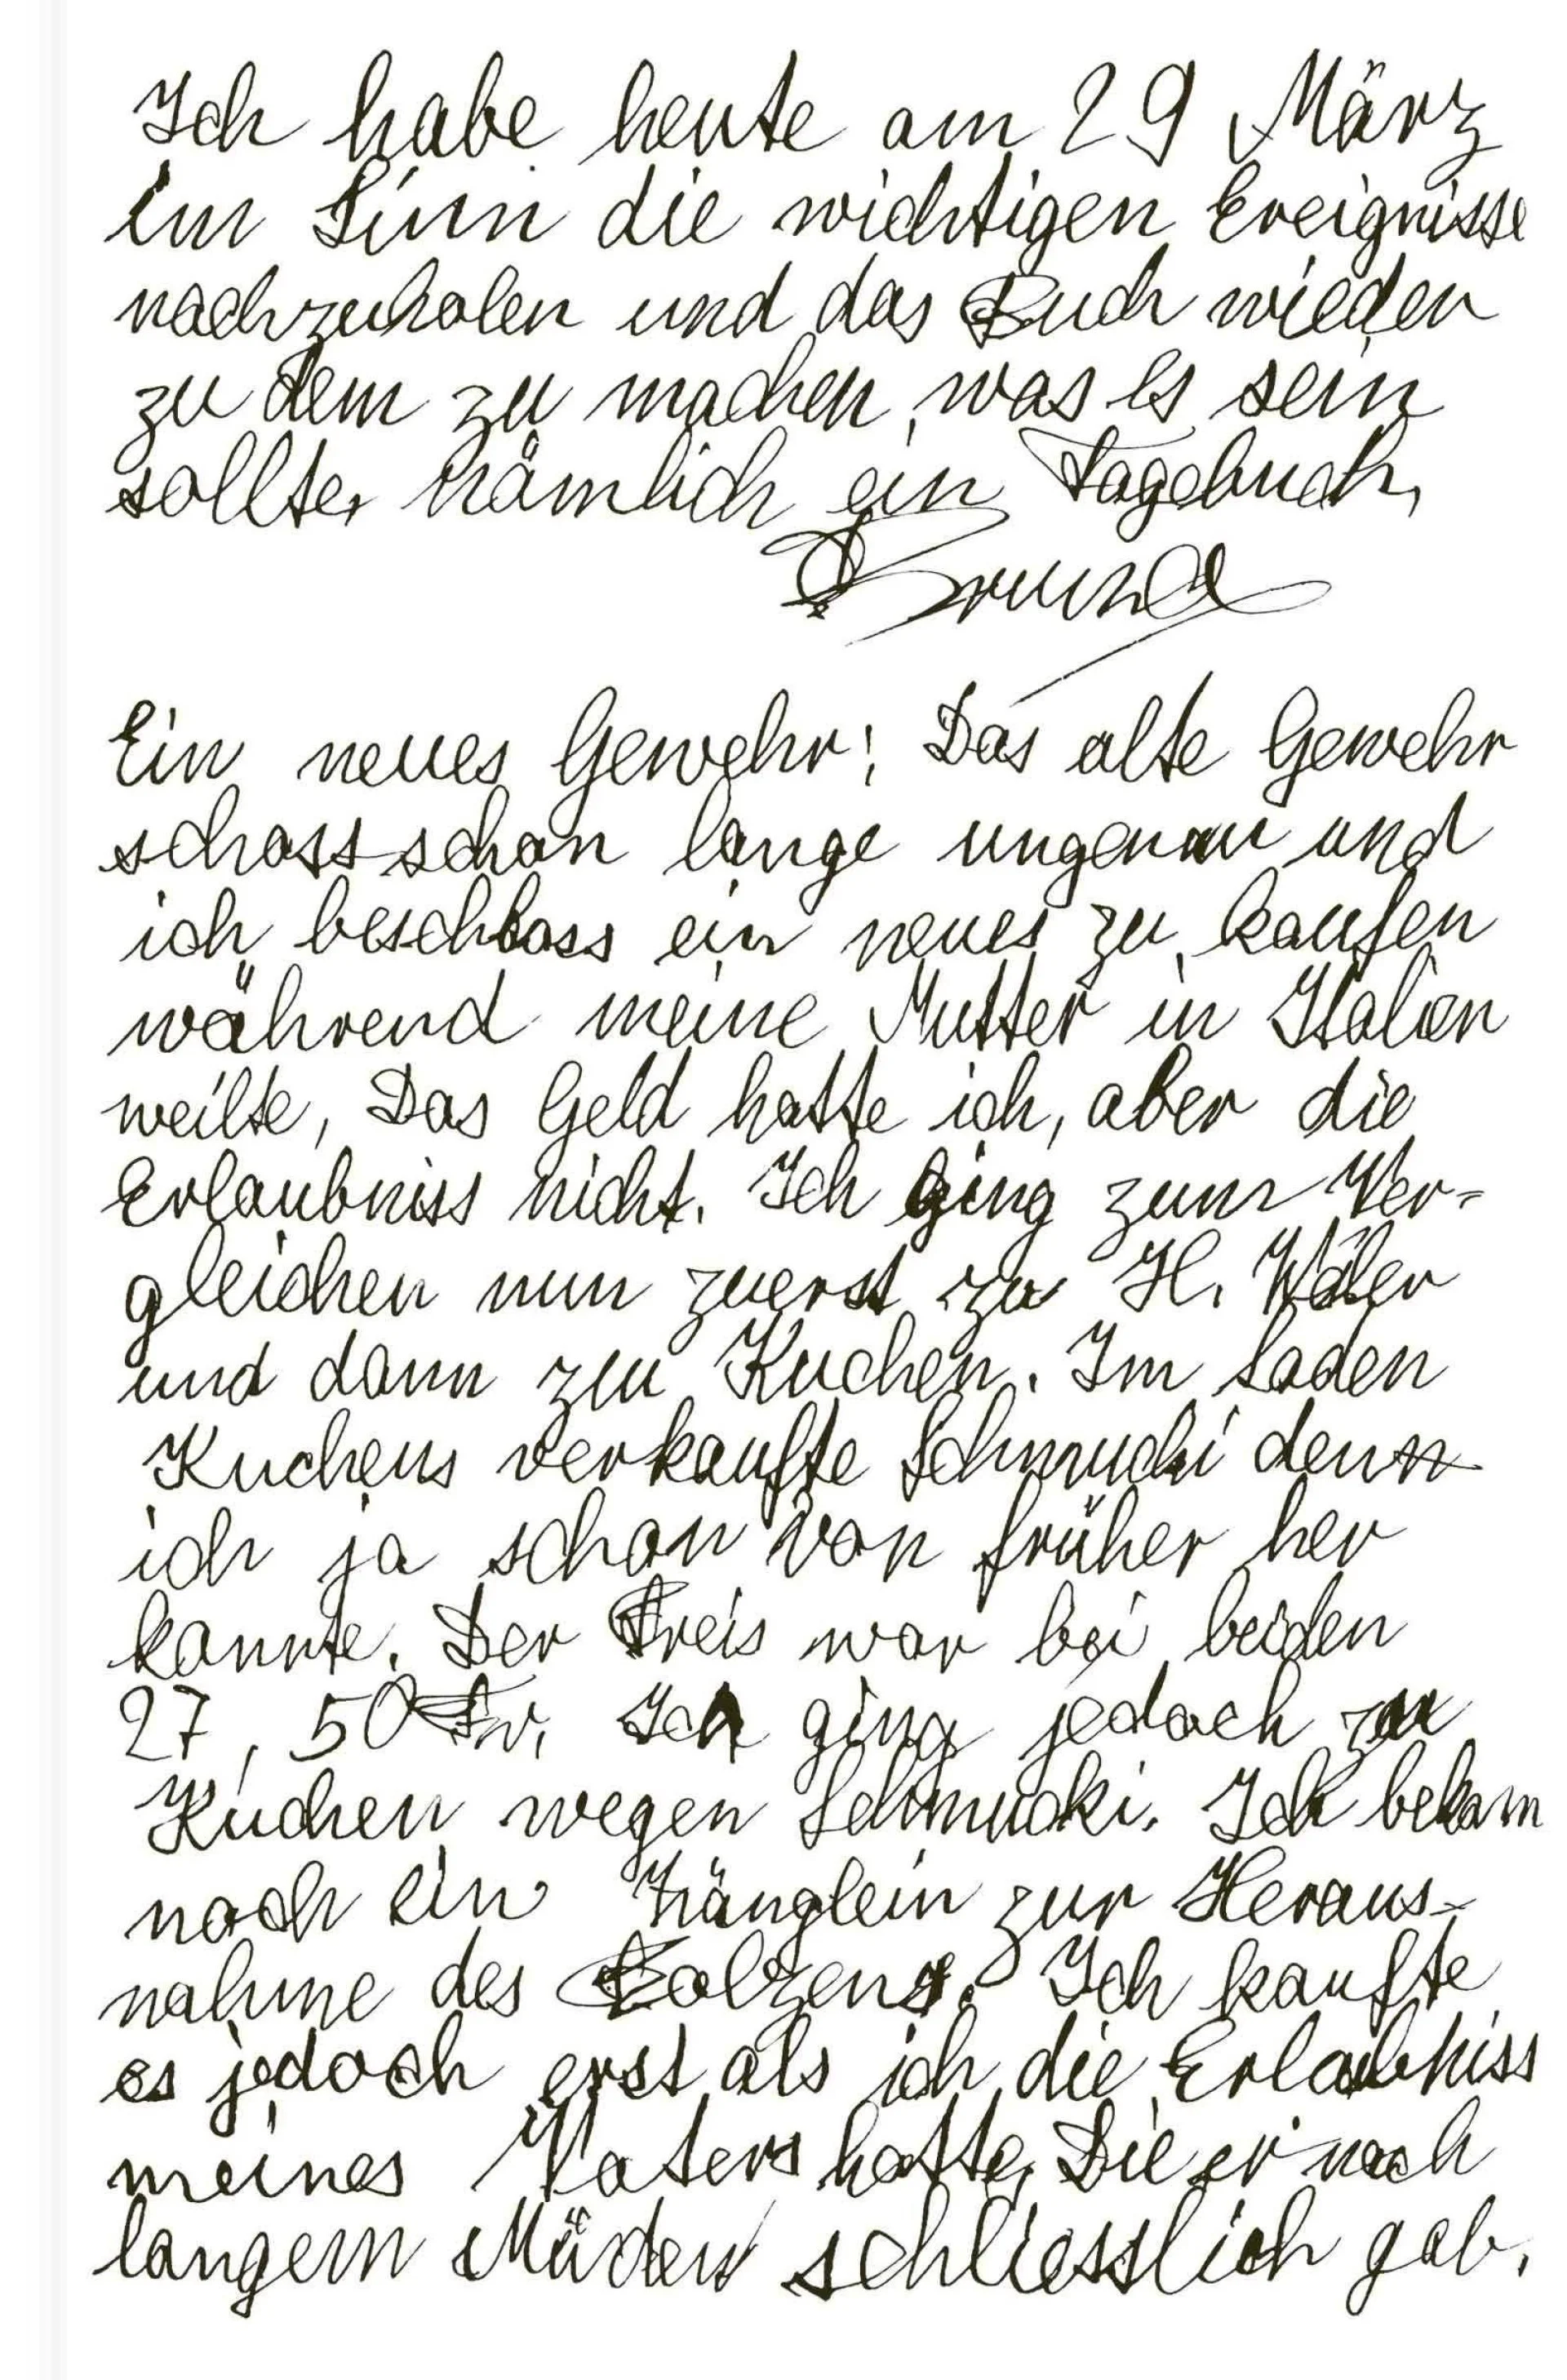 Ich habe heute am 29 März
im Sinn die wichtigen Ereignisse
nachzuholen und das Buch wieder
zu dem zu machen, was es sein
sollte, nämlich ein Tagebuch,
Ein neues Gewehr: Das alte Gewehr
schoss schon lange ungenau und
ich beschloss ein neues zu kaufen
während meine Mutter in Italien
weilte, Das Geld hatte ich, aber die
Erlaubniss nicht. Ich ging zum Ver-
gleichen nun zuerst zu H.
und dann zu Kuchen. Im Laden
Kuchens verkaufte Schmucki denn
ich ja schon von früher her
kannte. Der Preis war bei beiden
27, 50 Fr. Ich ging jedoch zu
Kuchen wegen Schmucki. Ich bekam
noch ein Zänglein zur Heraus-
nahme des Bolzens. Ich kaufte
es jedoch erst als ich die Erlaubniss
meines Vaters hatte, Die er nach
langem schliesslich gab.